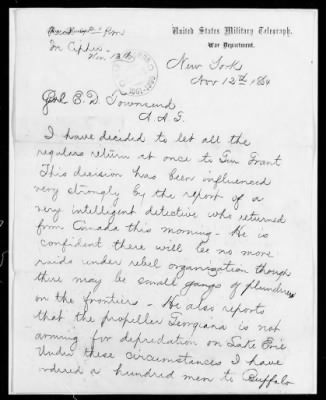 United States Military Telegraph.
War Department.
In Cipher
Nov. 12th
New York
Nov 12th 1864
Genl E. D. Townsend
A. A. G.
I have decided to let all the
regulars return at once to Gen Grant
This decision has been influenced
very strongly by the report of a
very intelligent detective who returned
from Canada this morning - He is
confident there will be no more
raids under rebel organization though
there may be small gangs of plunderers
on the frontiers - He also reports
that the propeller Georgiana is not
arming for depredation on Lake Erie
Under these circumstances I have
ordered a hundred men to Buffalo